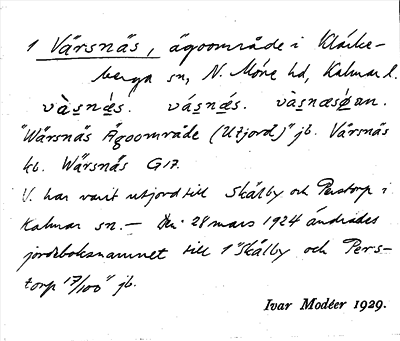 1 Värsnäs, ägoområde i Kläcke-
berga sn, N. Möre hd, Kalmar l.
vàs̲næ̀s. vás̲nǽs. vàs̲næsǿan.
"Wärsnäs Ägoområde (Utjord)" jb. Värsnäs
kb. Wärsnäs G17.
V. har varit utjord till Skälby och Perstorp i
Kalmar sn. — Den 28 mars 1924 ändrades
jordeboksnamnet till 1 "Skälby och Pers-
torp 17/100" jb.
Ivar Modéer 1929.